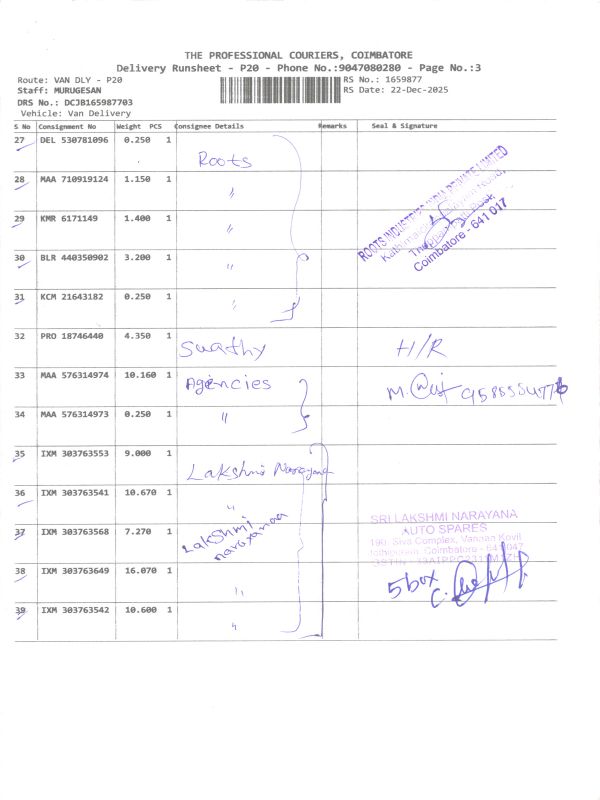 THE PROFESSIONAL COURIERS, COIMBATORE
Delivery Runsheet - P20 - Phone No.:9047080280 - Page No.:3
Route: VAN DLY - P20
Staff: MURUGESAN
DRS No.: DCJB165987703
Vehicle: Van Delivery
RS No.: 1659877
RS Date: 22-Dec-2025
S No Consignment No Weight PCS Consignee Details Remarks Seal & Signature
27 DEL 530781096 0.250 1 Roots
28 MAA 710919124 1.150 1 "
29 KMR 6171149 1.400 1 "
30 BLR 440350902 3.200 1 "
31 KCM 21643182 0.250 1 "
ROOTS INDUSTRIES INDIA PRIVATE LIMITED
Coimbatore - 641 017
32 PRO 18746440 4.350 1 Swathy H/R
33 MAA 576314974 10.160 1 Agencies M.
34 MAA 576314973 0.250 1 "
35 IXM 303763553 9.000 1 Lakshmi Narayana
36 IXM 303763541 10.670 1 "
37 IXM 303763568 7.270 1 Lakshmi narayanaa
38 IXM 303763649 16.070 1 "
39 IXM 303763542 10.600 1 "
SRI LAKSHMI NARAYANA
AUTO SPARES
Siva Complex,
Coimbatore - 641 047
5 box
C.